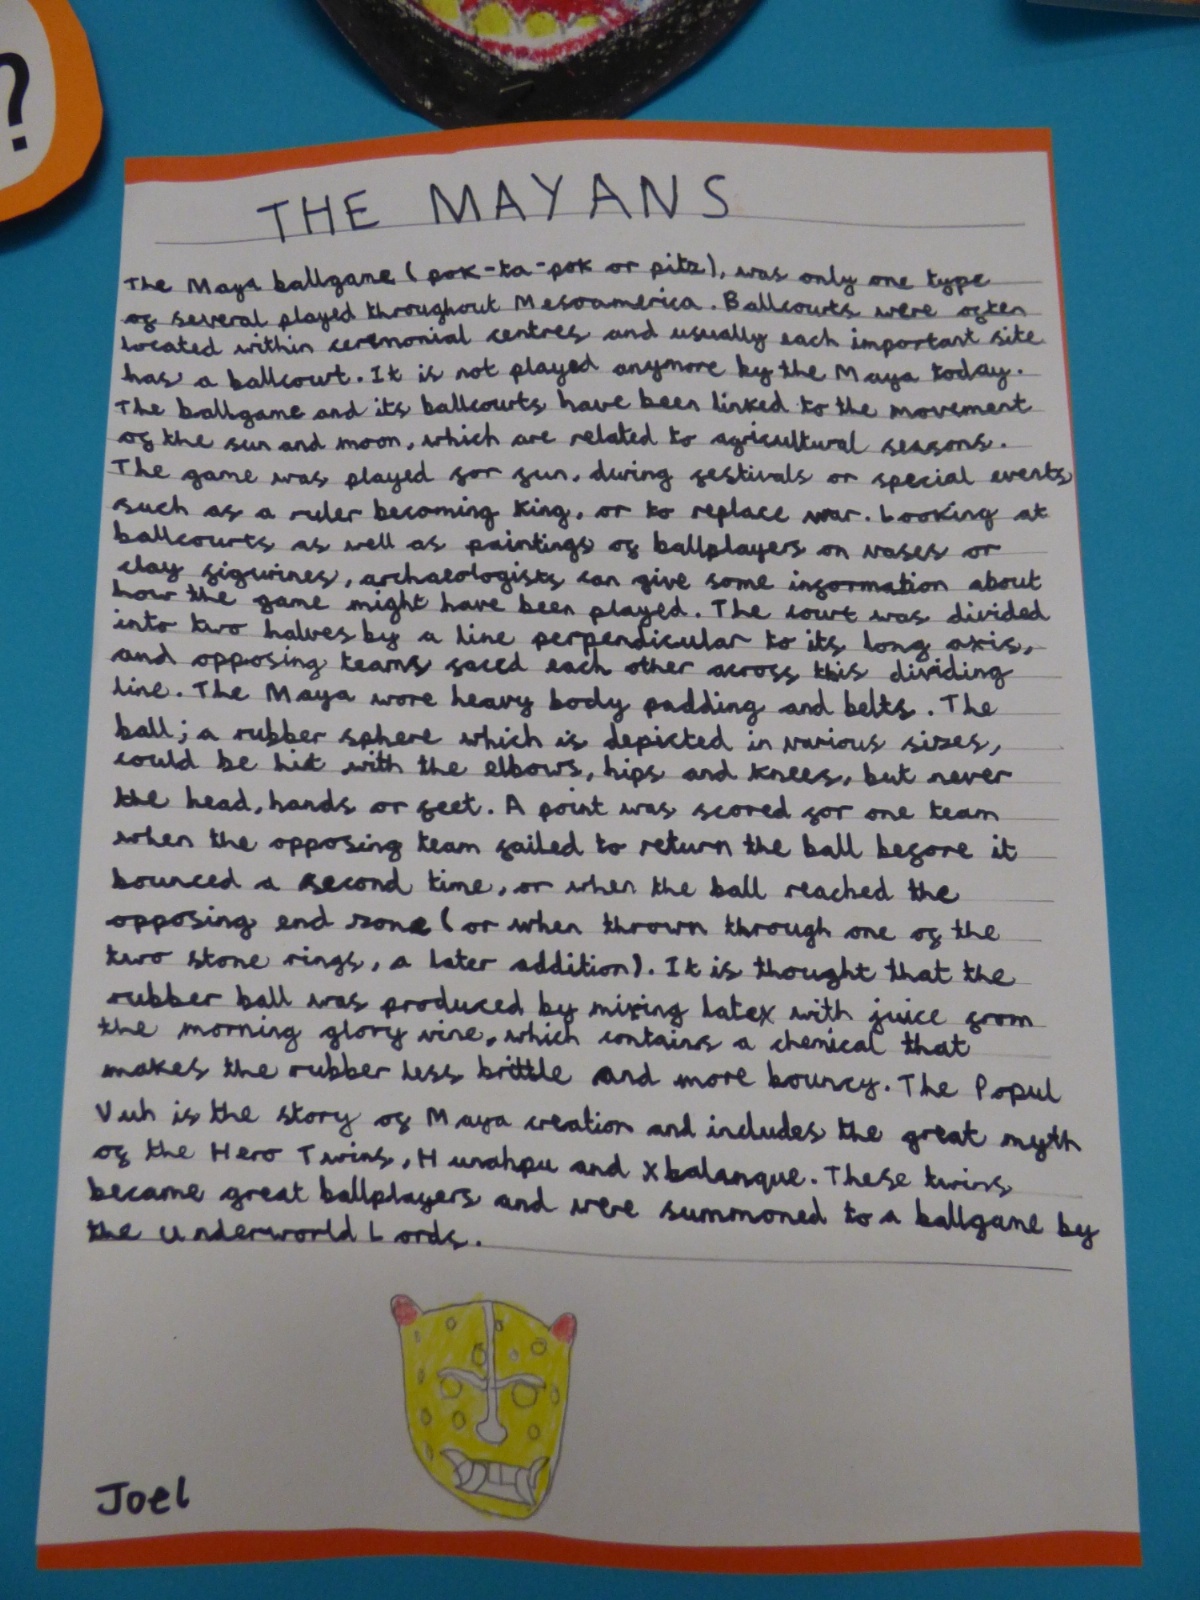 ?
THE MAYANS
The Maya ballgame (pok-ta-pok or pitz), was only one type
of several played throughout Mesoamerica. Ballcourts were often
located within ceremonial centres and usually each important site
has a ballcourt. It is not played anymore by the Maya today.
The ballgame and its ballcourts have been linked to the movement
of the sun and moon, which are related to agricultural seasons.
The game was played for fun, during festivals or special events
such as a ruler becoming King, or to replace war. Looking at
ballcourts as well as paintings of ballplayers on vases or
clay figurines, archaeologists can give some information about
how the game might have been played. The court was divided
into two halves by a line perpendicular to its long axis,
and opposing teams faced each other across this dividing
line. The Maya wore heavy body padding and belts. The
ball; a rubber sphere which is depicted in various sizes,
could be hit with the elbows, hips and knees, but never
the head, hands or feet. A point was scored for one team
when the opposing team failed to return the ball before it
bounced a second time, or when the ball reached the
opposing end zone (or when thrown through one of the
two stone rings, a later addition). It is thought that the
rubber ball was produced by mixing latex with juice from
the morning glory vine, which contains a chemical that
makes the rubber less brittle and more bouncy. The Popul
Vuh is the story of Maya creation and includes the great myth
of the Hero Twins, Hunahpu and Xbalanque. These twins
became great ballplayers and were summoned to a ballgame by
the Underworld Lords.
Joel